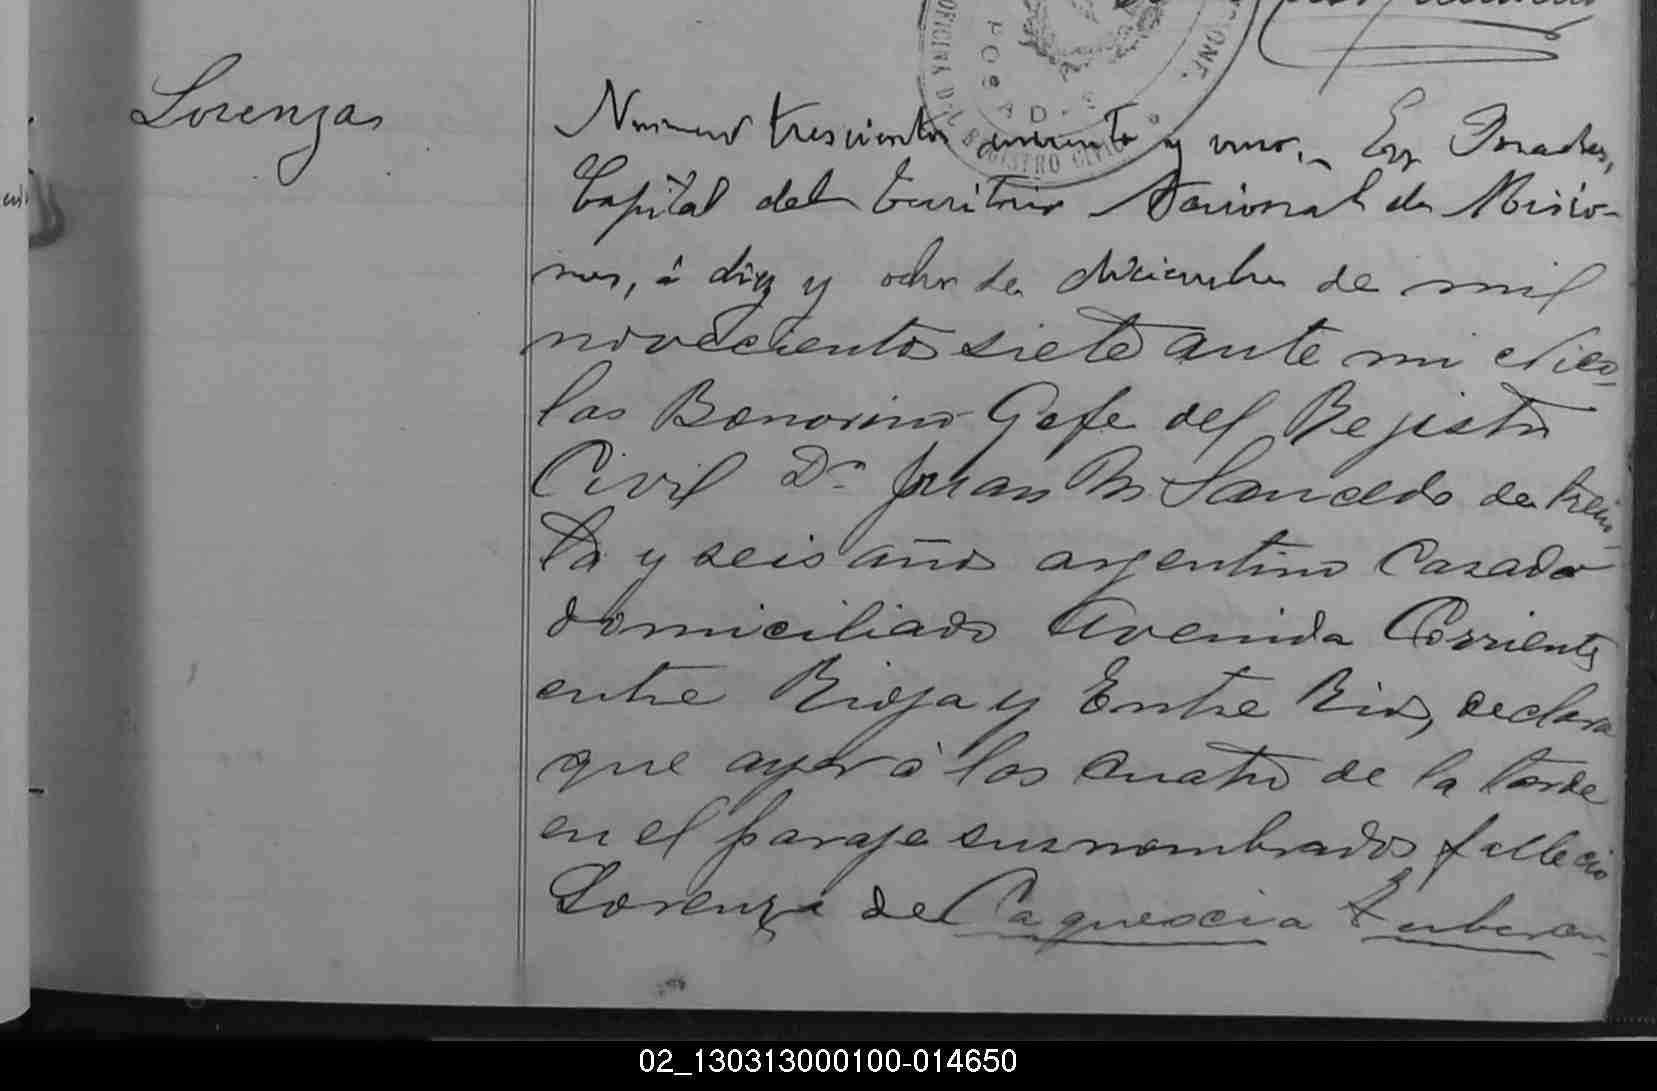 Lorenza
Numero trescientos cincuenta y uno. En Posadas,
Capital del Territorio Nacional de Misio-
nes, á diez y ocho de diciembre de mil
novecientos siete ante mi Nico-
las Bonorino Gefe del Registro
Civil Dn Juan M Saucedo de trein-
ta y seis años argentino Casado
domiciliado Avenida Corrientes
entre Rioja y Entre Rios, declara
que ayer à las cuatro de la tarde
en el paraje susnombrados fallecio
Lorenza de Caquexia Tubercu-
OFICINA DEL REGISTRO CIVIL
POSADAS
02_130313000100-014650